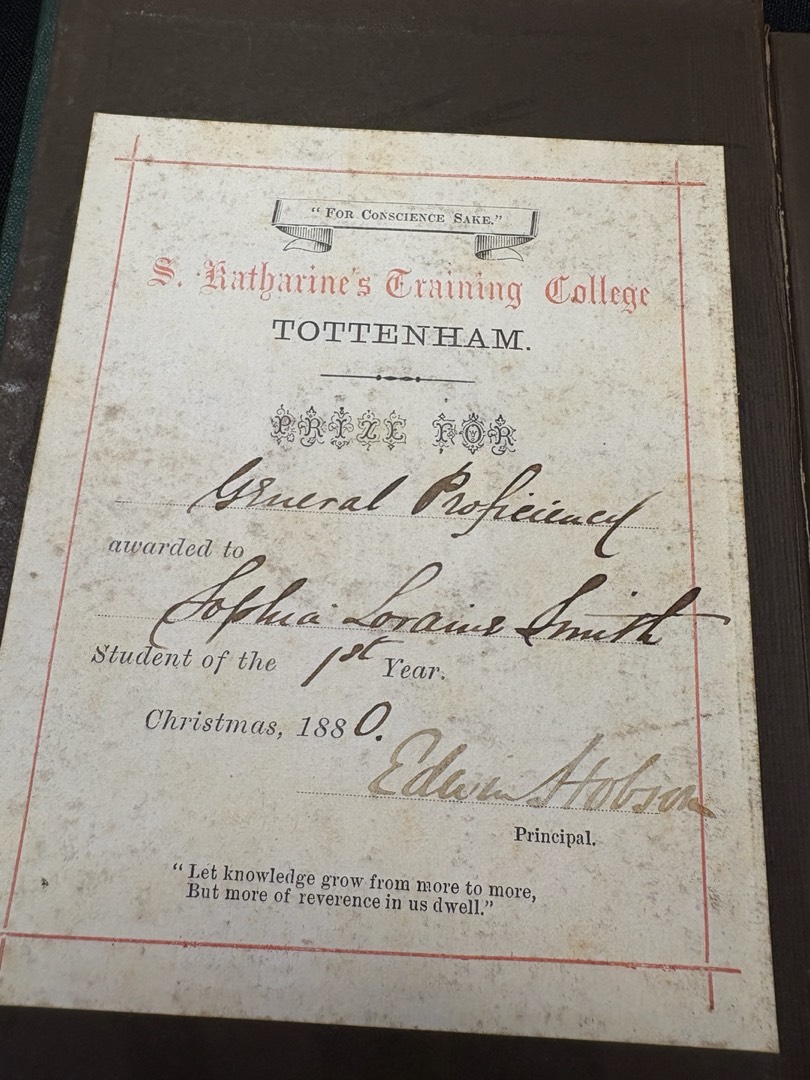 “ For Conscience Sake.”
S. Katharine's Training College
TOTTENHAM.
PRIZE FOR
General Proficiency
awarded to
Sophia Loraine Smith
Student of the 1st Year.
Christmas, 1880.
Edwin Hobson
Principal.
“ Let knowledge grow from more to more,
But more of reverence in us dwell.”